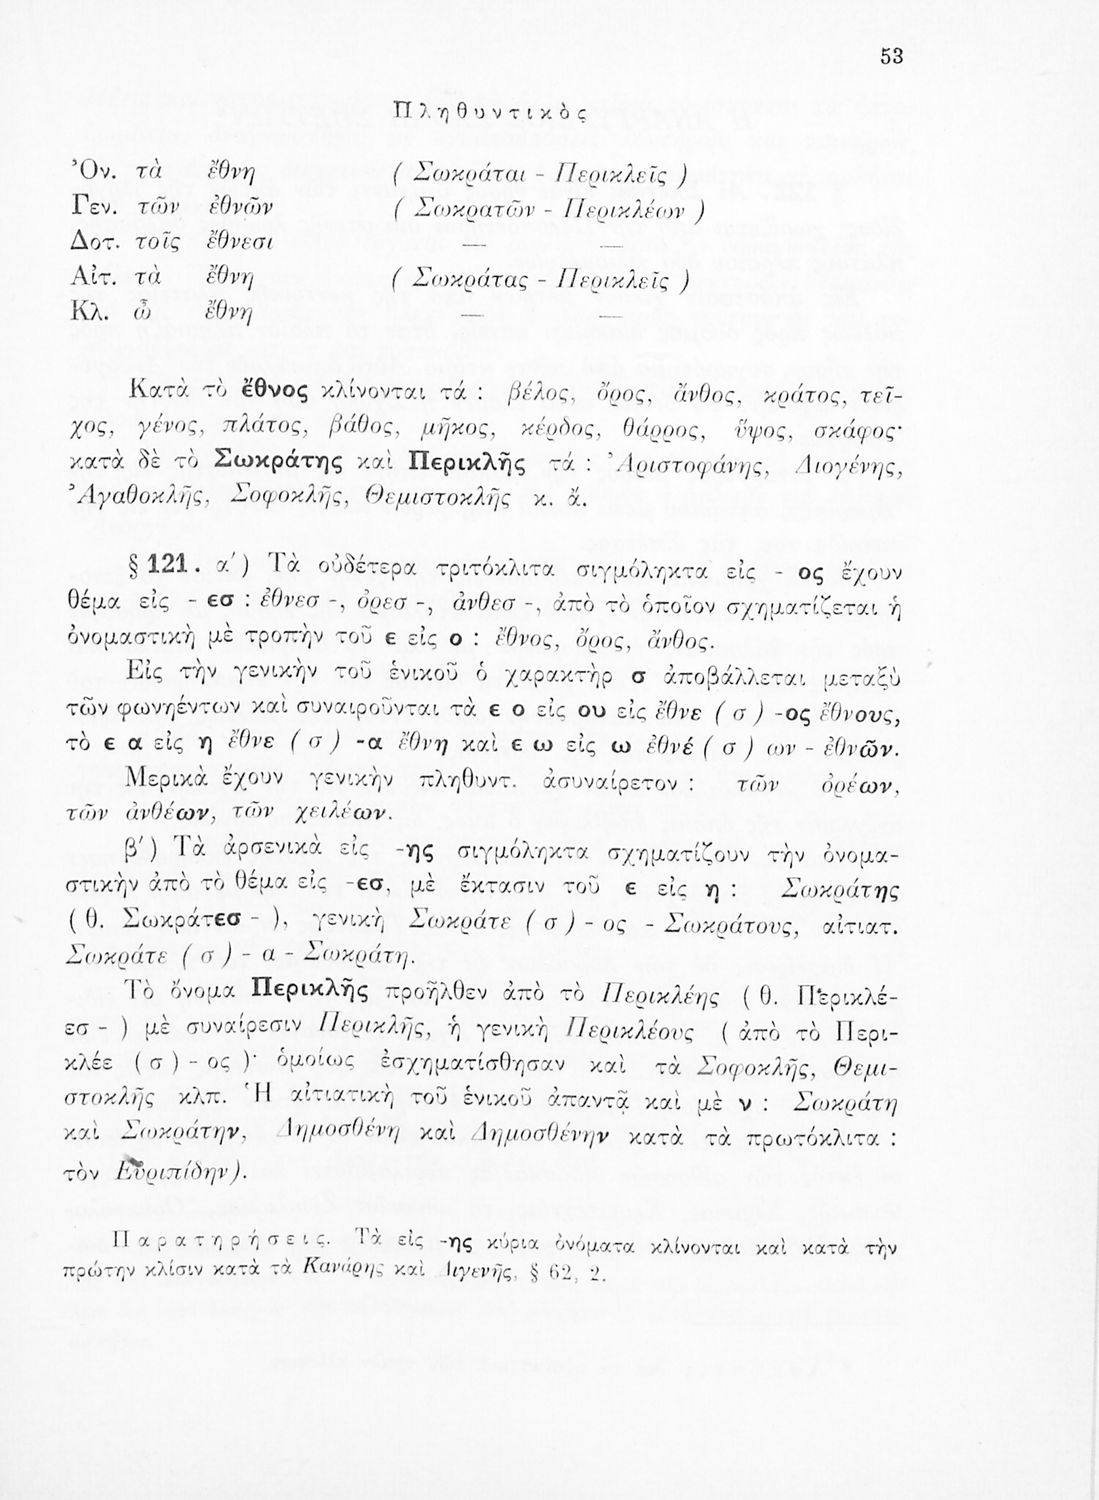 53
Πληθυντικὸς
Ὀν. τὰ ἔθνη ( Σωκράται - Περικλεῖς )
Γεν. τῶν ἐθνῶν ( Σωκρατῶν - Περικλέων )
Δοτ. τοῖς ἔθνεσι — —
Αἰτ. τὰ ἔθνη ( Σωκράτας - Περικλεῖς )
Κλ. ὦ ἔθνη — —
Κατὰ τὸ ἔθνος κλίνονται τά : βέλος, ὄρος, ἄνθος, κράτος, τεῖ-
χος, γένος, πλάτος, βάθος, μῆκος, κέρδος, θάρρος, ὕψος, σκάφος·
κατὰ δὲ τὸ Σωκράτης καὶ Περικλῆς τά : Ἀριστοφάνης, Διογένης,
Ἀγαθοκλῆς, Σοφοκλῆς, Θεμιστοκλῆς κ. ἄ.
§ 121. α΄) Τὰ οὐδέτερα τριτόκλιτα σιγμόληκτα εἰς - ος ἔχουν
θέμα εἰς - εσ : ἐθνεσ -, ὀρεσ -, ἀνθεσ -, ἀπὸ τὸ ὁποῖον σχηματίζεται ἡ
ὀνομαστικὴ μὲ τροπὴν τοῦ ε εἰς ο : ἔθνος, ὄρος, ἄνθος.
Εἰς τὴν γενικὴν τοῦ ἑνικοῦ ὁ χαρακτὴρ σ ἀποβάλλεται μεταξὺ
τῶν φωνηέντων καὶ συναιροῦνται τὰ ε ο εἰς ου εἰς ἔθνε ( σ ) -ος ἔθνους,
τὸ ε α εἰς η ἔθνε ( σ ) -α ἔθνη καὶ ε ω εἰς ω ἐθνέ ( σ ) ων - ἐθνῶν.
Μερικὰ ἔχουν γενικὴν πληθυντ. ἀσυναίρετον : τῶν ὀρέων,
τῶν ἀνθέων, τῶν χειλέων.
β΄) Τὰ ἀρσενικὰ εἰς -ης σιγμόληκτα σχηματίζουν τὴν ὀνομα-
στικὴν ἀπὸ τὸ θέμα εἰς -εσ, μὲ ἔκτασιν τοῦ ε εἰς η : Σωκράτης
( θ. Σωκράτεσ - ), γενικὴ Σωκράτε ( σ ) - ος - Σωκράτους, αἰτιατ.
Σωκράτε ( σ ) - α - Σωκράτη.
Τὸ ὄνομα Περικλῆς προῆλθεν ἀπὸ τὸ Περικλέης ( θ. Περικλέ-
εσ - ) μὲ συναίρεσιν Περικλῆς, ἡ γενικὴ Περικλέους ( ἀπὸ τὸ Περι-
κλέε ( σ ) - ος )· ὁμοίως ἐσχηματίσθησαν καὶ τὰ Σοφοκλῆς, Θεμι-
στοκλῆς κλπ. Ἡ αἰτιατικὴ τοῦ ἑνικοῦ ἀπαντᾷ καὶ μὲ ν : Σωκράτη
καὶ Σωκράτην, Δημοσθένη καὶ Δημοσθένην κατὰ τὰ πρωτόκλιτα :
τὸν Εὐριπίδην).
Παρατηρήσεις. Τὰ εἰς -ης κύρια ὀνόματα κλίνονται καὶ κατὰ τὴν
πρώτην κλίσιν κατὰ τὰ Κανάρης καὶ Διγενῆς, § 62, 2.